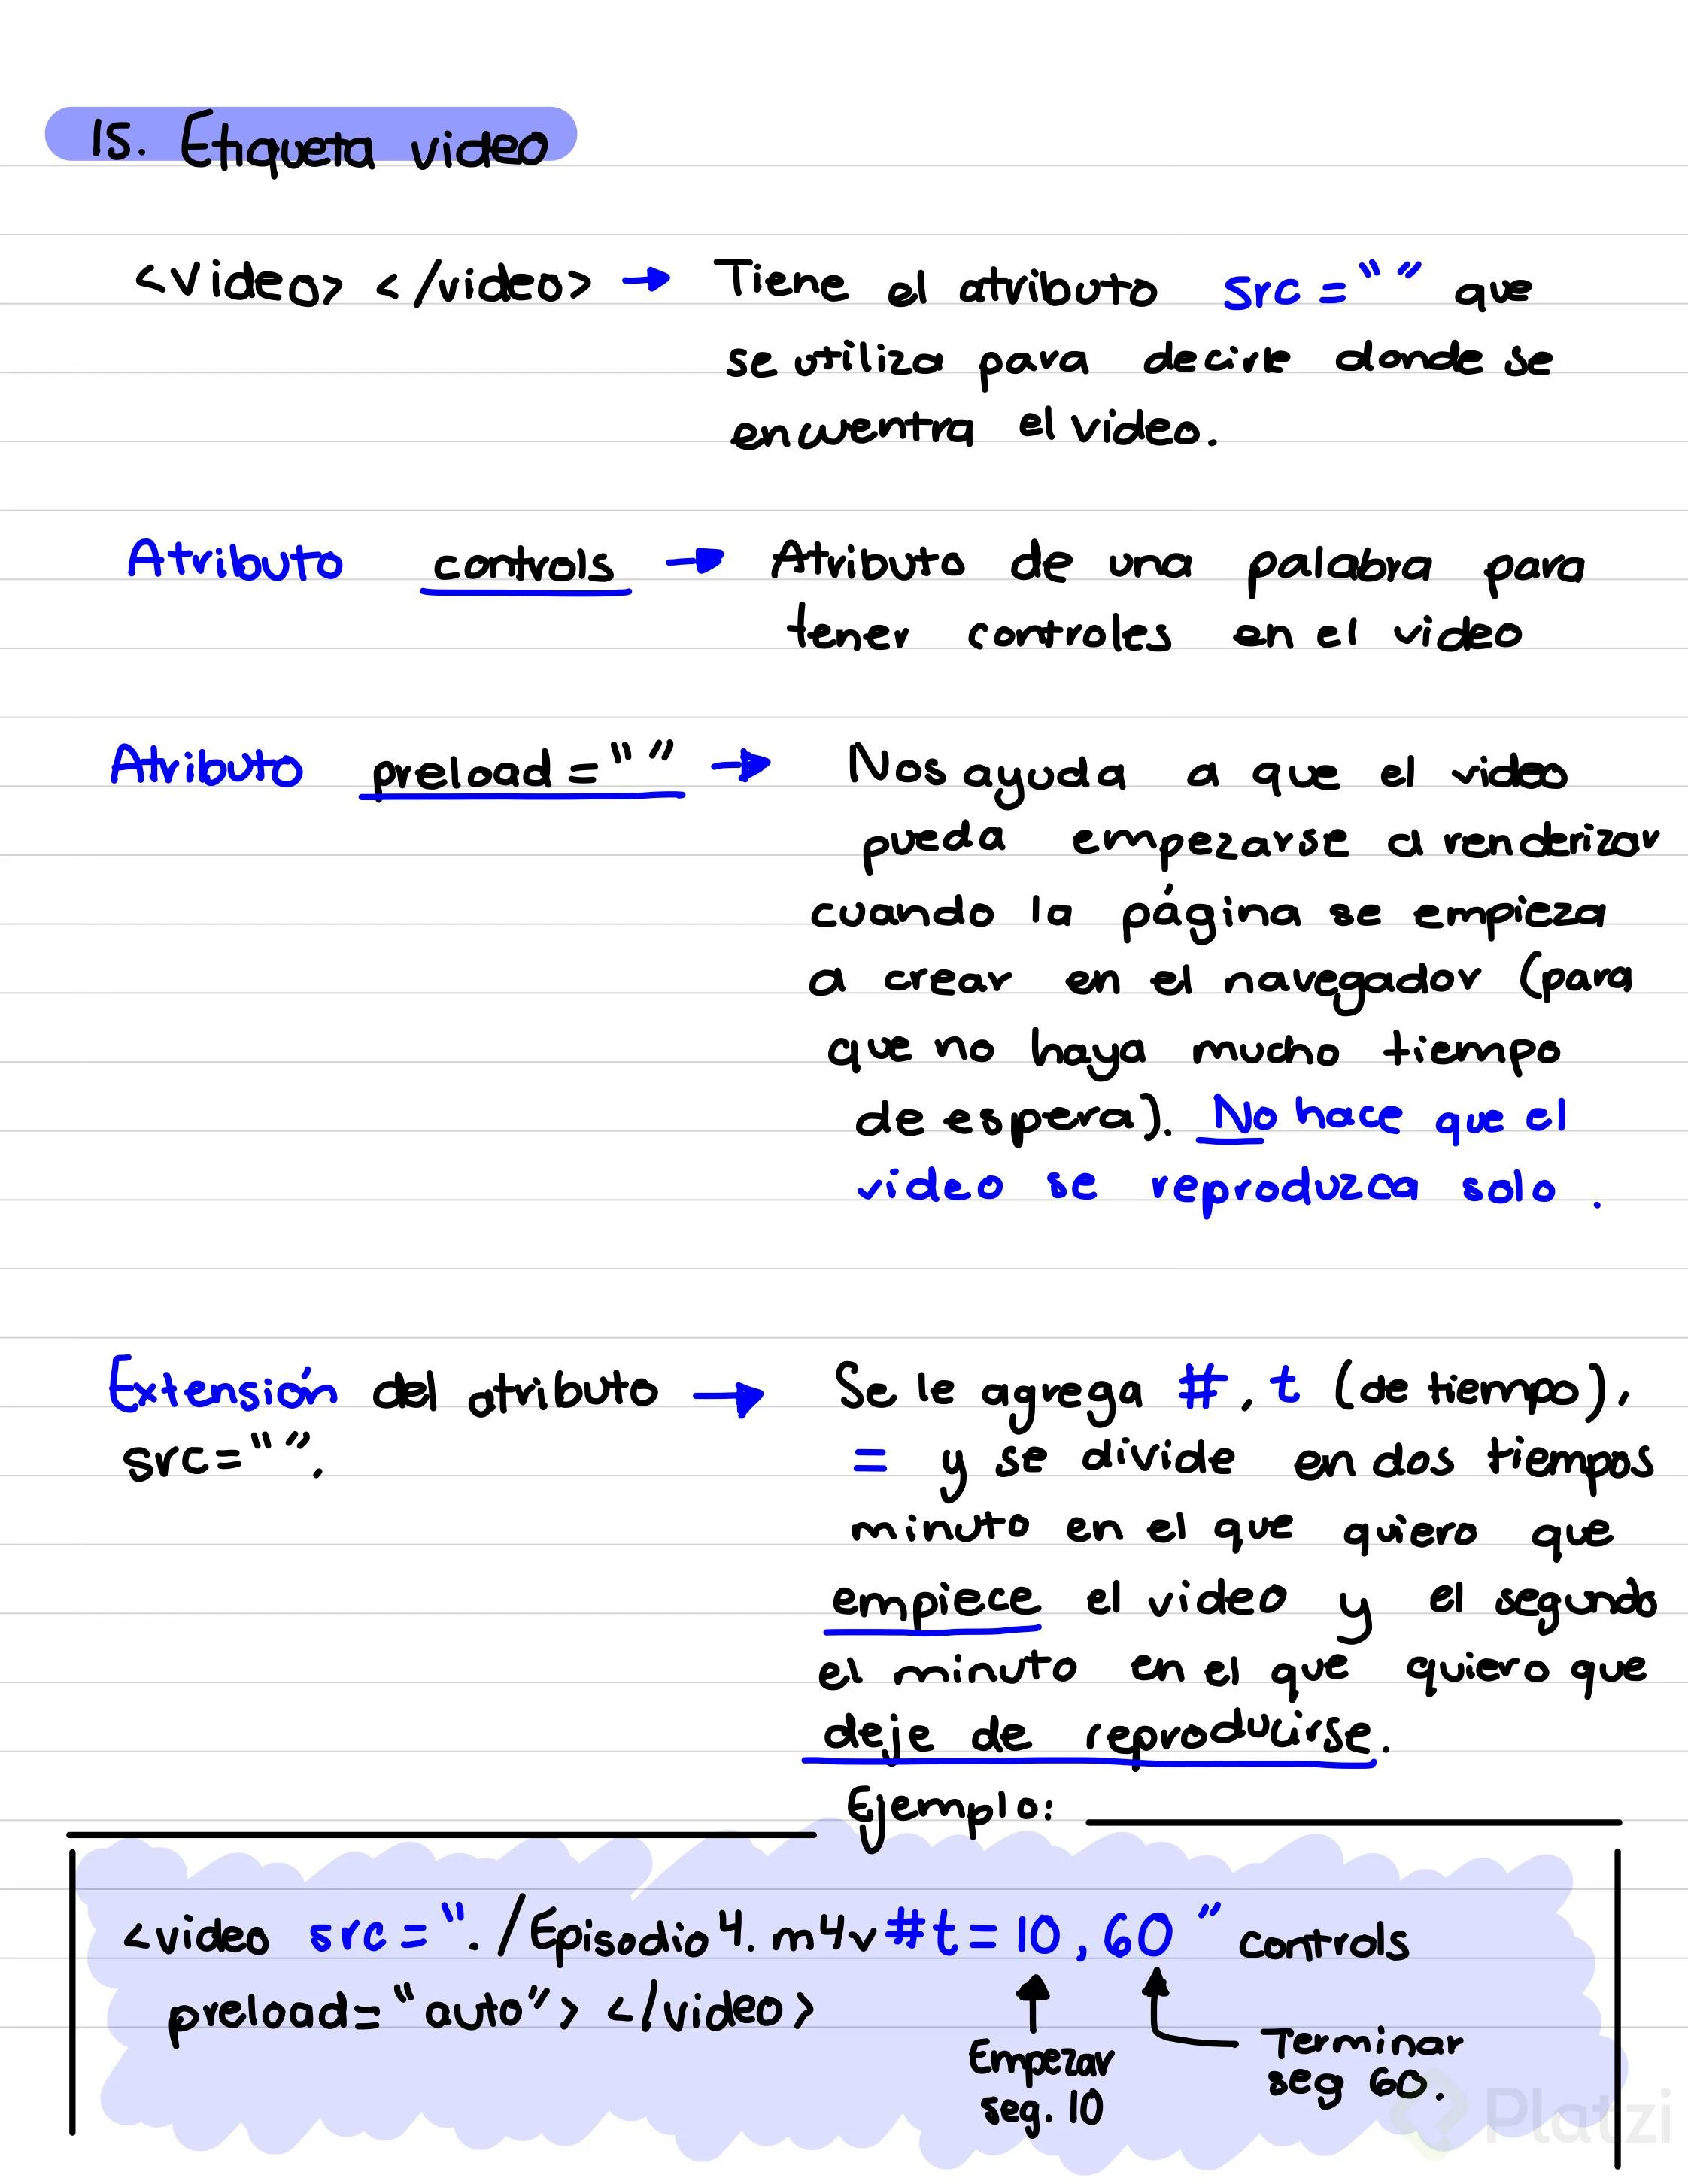 15. Etiqueta video
<video> </video> → Tiene el atributo src="" que
se utiliza para decirle donde se
encuentra el video.
Atributo controls → Atributo de una palabra para
tener controles en el video
Atributo preload="" → Nos ayuda a que el video
pueda empezarse a renderizar
cuando la página se empieza
a crear en el navegador (para
que no haya mucho tiempo
de espera). No hace que el
video se reproduzca solo.
Extensión del atributo → Se le agrega #, t (de tiempo),
src="".
= y se divide en dos tiempos
minuto en el que quiero que
empiece el video y el segundo
el minuto en el que quiero que
deje de reproducirse.
Ejemplo:
<video src="./Episodio4.m4v#t=10,60" controls
preload="auto"> </video>
Empezar
seg. 10
Terminar
seg 60.
Platzi